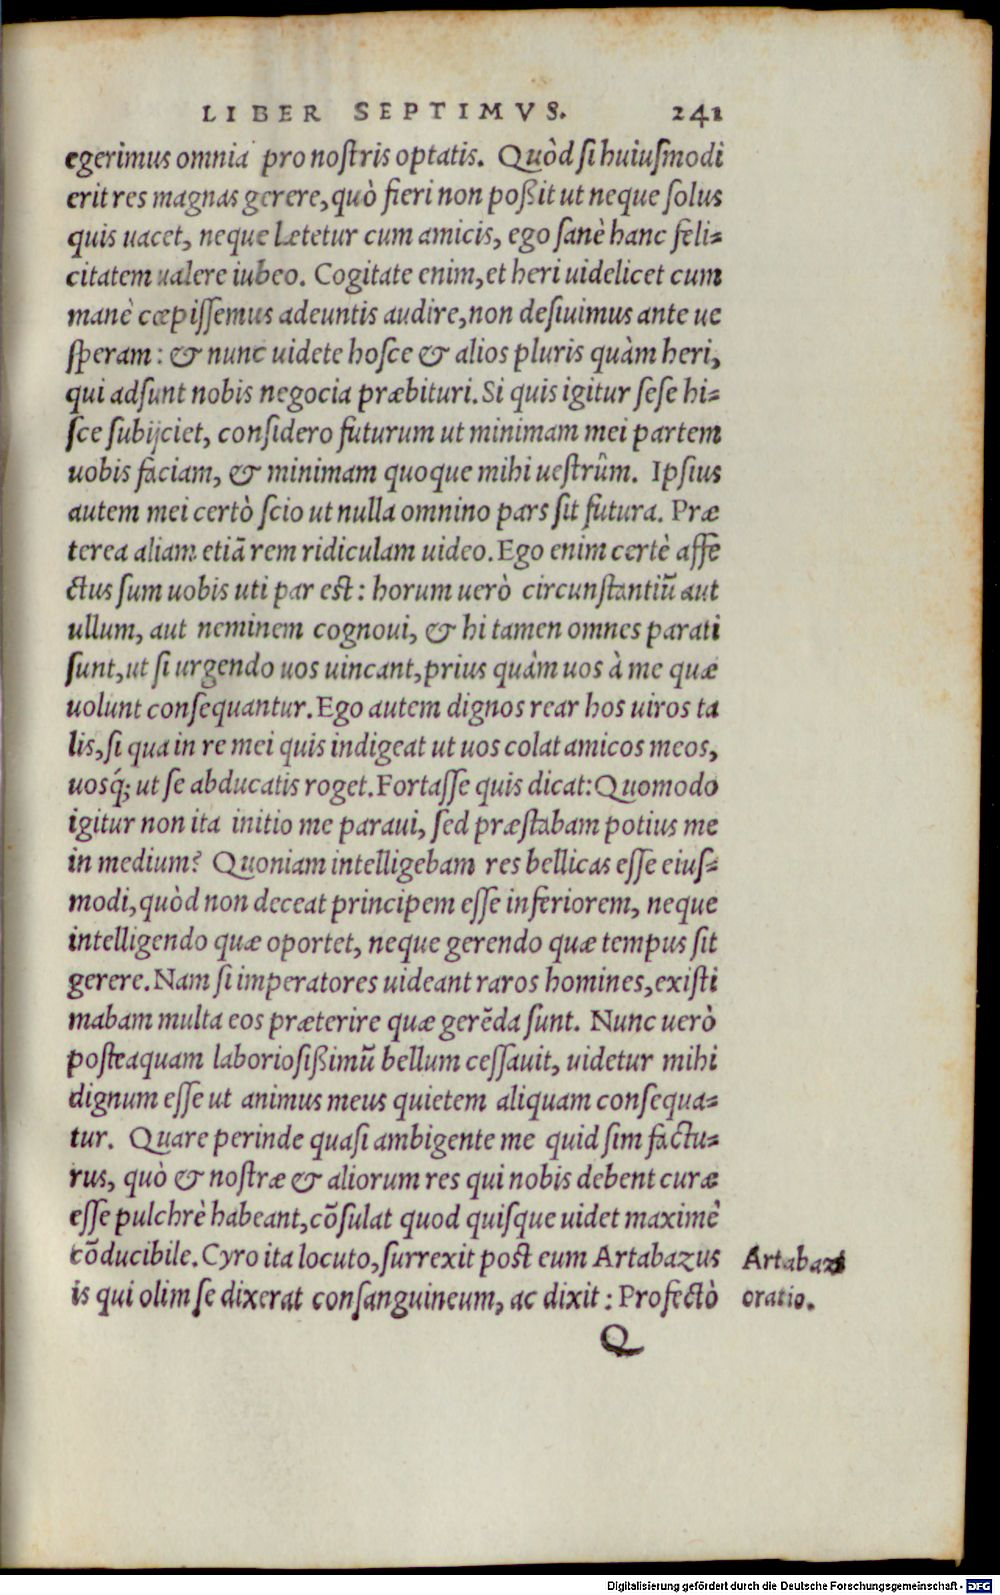 LIBER SEPTIMVS. 241
egerimus omnia pro nostris optatis. Quòd si huiusmodi
erit res magnas gerere, quò fieri non poßit ut neque solus
quis uacet, neque lætetur cum amicis, ego sanè hanc feli=
citatem ualere iubeo. Cogitate enim, et heri uidelicet cum
manè cœpissemus adeuntis audire, non desiuimus ante ue
speram: & nunc uidete hosce & alios pluris quàm heri,
qui adsunt nobis negocia præbituri. Si quis igitur sese hi=
sce subijciet, considero futurum ut minimam mei partem
uobis faciam, & minimam quoque mihi uestrûm. Ipsius
autem mei certò scio ut nulla omnino pars sit futura. Præ
terea aliam etiã rem ridiculam uideo. Ego enim certè affe
ctus sum uobis uti par est: horum uerò circunstantiũ aut
ullum, aut neminem cognoui, & hi tamen omnes parati
sunt, ut si urgendo uos uincant, prius quàm uos à me quæ
uolunt consequantur. Ego autem dignos rear hos uiros ta
lis, si qua in re mei quis indigeat ut uos colat amicos meos,
uosq́; ut se abducatis roget. Fortasse quis dicat: Quomodo
igitur non ita initio me paraui, sed præstabam potius me
in medium? Quoniam intelligebam res bellicas esse eius=
modi, quòd non deceat principem esse inferiorem, neque
intelligendo quæ oportet, neque gerendo quæ tempus sit
gerere. Nam si imperatores uideant raros homines, existi
mabam multa eos præterire quæ gerẽda sunt. Nunc uerò
posteaquam laboriosißimũ bellum cessauit, uidetur mihi
dignum esse ut animus meus quietem aliquam consequa=
tur. Quare perinde quasi ambigente me quid sim factu=
rus, quò & nostræ & aliorum res qui nobis debent curæ
esse pulchrè habeant, cõsulat quod quisque uidet maximè
cõducibile. Cyro ita locuto, surrexit post eum Artabazus
is qui olim se dixerat consanguineum, ac dixit: Profectò
Artabazi
oratio.
Q
Digitalisierung gefördert durch die Deutsche Forschungsgemeinschaft - DFG